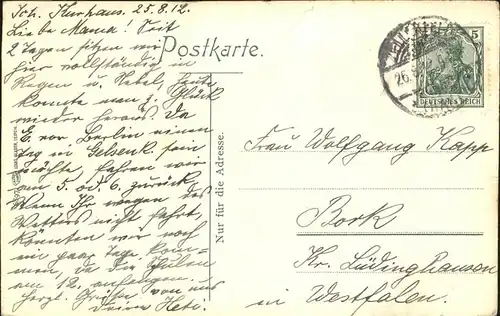 Sch. Kurhaus. 25.8.12.
Liebe Mama! Seit
2 Tagen sitzen wir
hier vollständig in
Regen u. Nebel, heute
konnte man z. Glück
wieder heraus. Da
E. vor Berlin einen
Tag in Gelsenk. sein
möchte, fahren wir
am 5. od. 6. zurück.
Wenn Ihr wegen des
Wetters nicht fahrt,
könnten wir noch
ein paar Tage kom-
men, da die Schulen
am 12. anfangen.
Herzl. Grüße von uns
Deine Heti.
Postkarte.
Nur für die Adresse.
5
DEUTSCHES REICH
26.8.12
Frau Wolfgang Kapp
Bork
Kr. Lüdinghausen
in Westfalen.